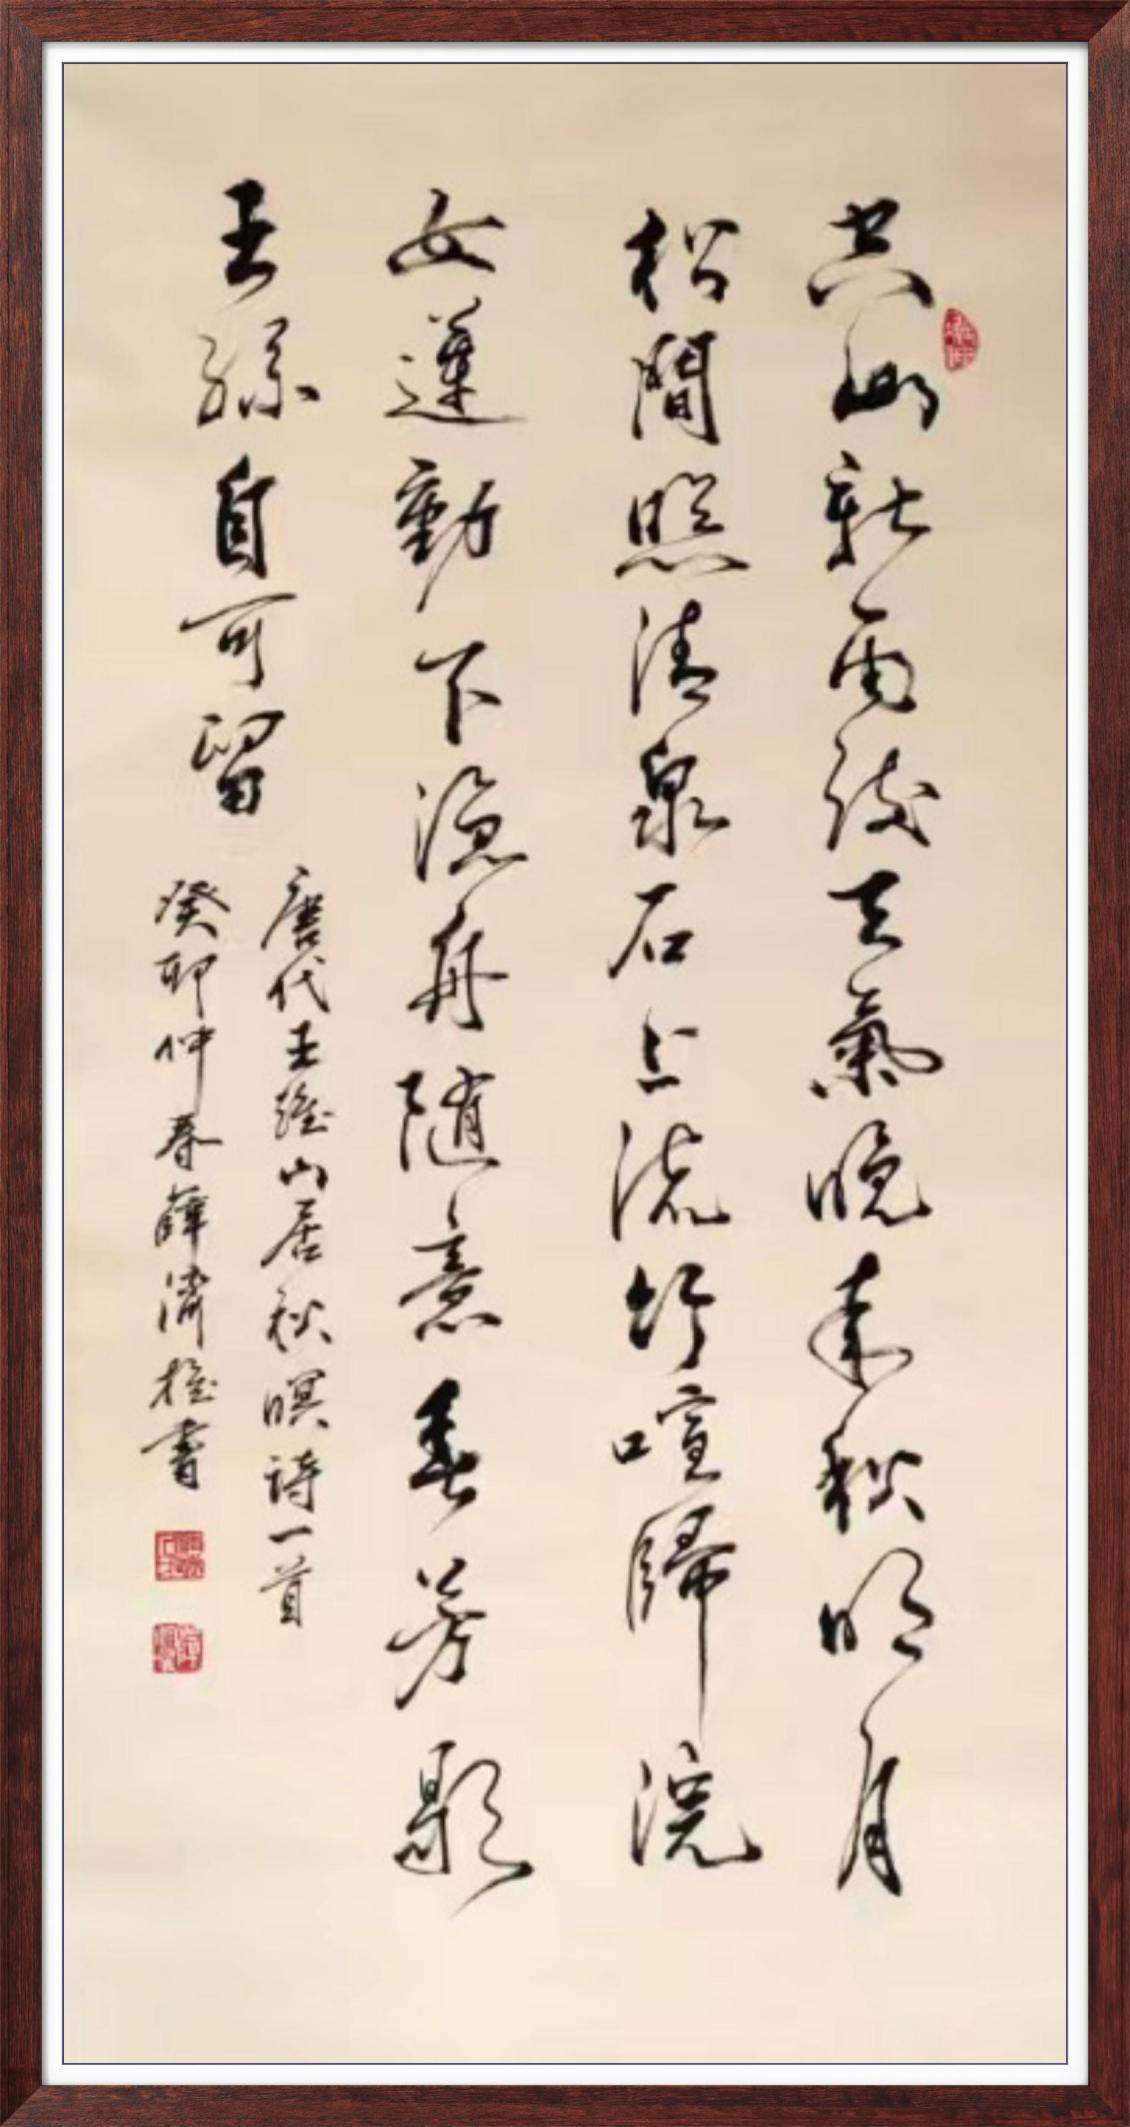 空山新雨後天氣晚來秋明月
松間照清泉石上流竹喧歸浣
女蓮動下漁舟隨意春芳歇
王孫自可留
唐代王維山居秋暝詩一首
癸卯仲春薛濟書